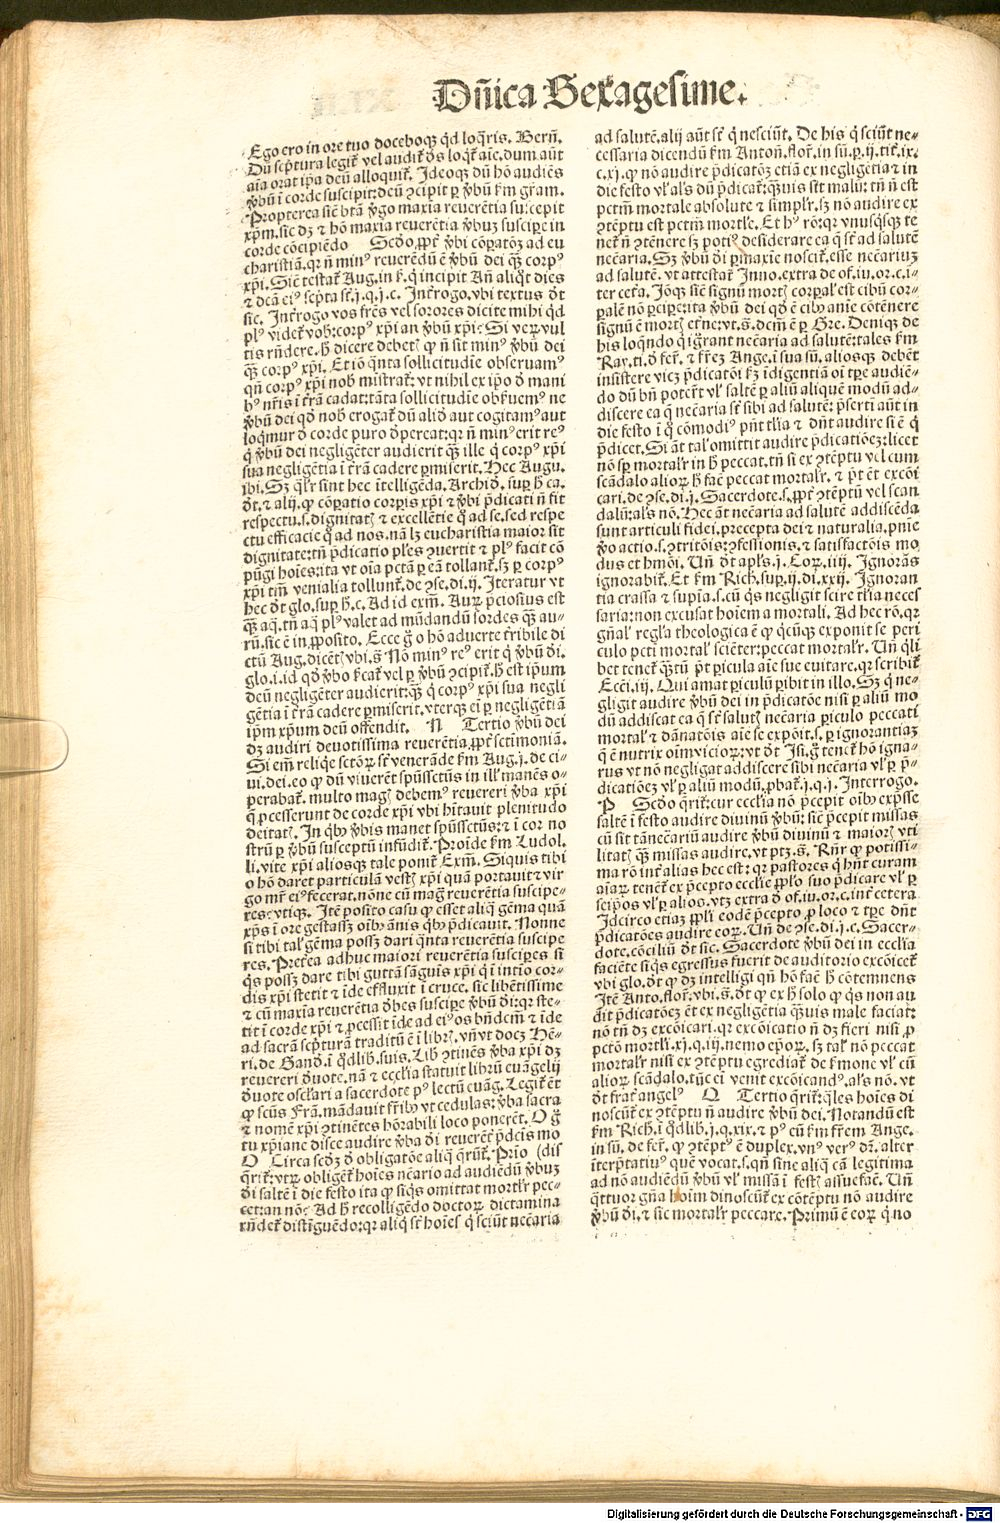 Dn̄ica Sexagesime.
Ego ero in ore tuo doceboqꝫ qd loq̄ris. Bern̄.
Dū scp̄tura legit᷑ vel audit᷑ d̄s loqt᷑ aīe. dum aūt
aīa orat ip̄a deū alloquit᷑. Ideoqꝫ dū hō audiēs
v̄bū ī corde suscipit: deū ꝯcipit ꝑ v̄bū km gr̄am.
Propterea sic̄ btā v̄go maxīa reuerētia suscepit
xp̄m. sic̄ dꝫ ⁊ hō maxīa reuerētia v̄buꝫ suscipe in
corde cōcipiēdo Scdo ꝓpt᷑ v̄bi cōꝑatōꝫ ad eu
charistiā. qr n̄ minꝰ reuerēdū ē v̄bū dei qꝫ̄ corpꝰ
xp̄i. Sic̄ testat᷑ Aug. in k̄. q̄ incipit An̄ aliqt dies
⁊ dcā eiꝰ scp̄ta st᷑. i. q. i. c. Int᷑rogo. vbi textus dt᷑
sic. Int᷑rogo vos fr̄es vel sorores dicite mihi qd
plꝰ videt᷑ vob̄: corpꝰ xp̄i an v̄bū xp̄i: Si veꝝ vul
tis rn̄dere. h̄ dicere debetꝭ ꝙ n̄ sit minꝰ v̄bū dei
qꝫ̄ corpꝰ xp̄i. Et iō q̄nta sollicitudīe obseruamꝰ
qn̄ corpꝰ xp̄i nob̄ mīstrat᷑: vt nihil ex ip̄o d̄ mani
bꝰ nr̄is ī t᷑rā cadat: tāta sollicitudīe obẜuemꝰ ne
v̄bū dei qd̄ nob̄ erogat᷑ dū aliđ aut cogitamꝰ aut
loqmur d̄ corde puro d̄pereat: qr n̄ minꝰ erit reꝰ
q̄ v̄bū dei negligēter audierit qꝫ̄ ille q̄ corpꝰ xp̄i
sua negligētia ī t᷑rā cadere ꝑmiserit. Hec Augu.
ibi. Sꝫ qlr̄ sint hec ītelligēda. Archid̄. suꝑ h̄ ca.
dt᷑. ⁊ alij. ꝙ cōꝑatio corꝑis xp̄i ⁊ v̄bi p̄dicati n̄ fit
respectu. s. dignitatꝭ ⁊ excellētie q̄ ad se. sed respe
ctu efficacie q̄ ad nos. nā lꝫ eucharistia maior sit
dignitate: tn̄ p̄dicatio pl̄es ꝯuertit ⁊ plꝰ facit cō
pūgi hoīes: ita vt oīa pctā ꝑ eā tollant᷑. sꝫ ꝑ corpꝰ
xp̄i tm̄ venialia tollunt᷑. de ꝯse. di. ij. Iteratur vt
hec dt᷑ glo. suꝑ h̄. c. Ad id exm̄. Auꝝ p̄ciosius est
qꝫ̄ aq̄. tn̄ aq̄ plꝰ valet ad mūdandū sordes qꝫ̄ au-
rū. sic ē in ꝓposito. Ecce g̊ o hō aduerte t᷑ribile di
ctū Aug. dicētꝭ vbi. s̄. Nō minꝰ reꝰ erit q̄ v̄bū di.
glo. i. id qd̄ v̄bo k̄cat᷑ vel ꝑ v̄bū ꝯcipit᷑. h̄ est ip̄um
deū negligēter audierit: qꝫ̄ q̄ corpꝰ xp̄i sua negli
gētia ī t᷑rā cadere ꝑmiserit. vterqꝫ ei ꝑ negligētiā
ip̄m xp̄um deū offendit. N Tertio v̄bū dei
dꝫ audiri deuotissima reuerētia. ꝓpt᷑ sctimoniā.
Si em̄ reliqe sctoꝝ st᷑ venerāde km Aug. j. de ci-
ui. dei. eo ꝙ dū viuerēt spūssctūs in illꝭ manēs o-
perabat᷑. multo magꝭ debemꝰ reuereri v̄ba xp̄i
q̄ ꝓcesserunt de corde xp̄i vbi hītauit plenitudo
deitatꝭ. In qbꝰ v̄bis manet spūssctūs: ⁊ ī cor no
strū ꝑ v̄bū susceptū infūdit᷑. Proīde km Ludol.
li. vite xp̄i aliosqꝫ tale ponit᷑ Exm̄. Siquis tibi
o hō daret particulā vestꝭ xp̄i quā portauit ⁊ vir
go mr̄ eiꝰ fecerat. nōne cū mag̊ reuerētia suscipe-
res: vtiqꝫ. Itē posito casu ꝙ esset aliq̄ gēma quā
xp̄s ī ore gestassꝫ oībꝰ ānis qbꝰ p̄dicauit. Nonne
si tibi talꝭ gēma possꝫ dari q̄nta reuerētia suscipe
res. Pret᷑ea adhuc maiori reuerētia susciꝑes si
qs possꝫ dare tibi guttā sāguīs xp̄i q̄ ī intīo cor-
dis xp̄i stetit ⁊ īde effluxit ī cruce. sic̄ libētissime
⁊ cū maxīa reuerētia d̄bes susciꝑe v̄bū di: qr ste-
tit ī corde xp̄i ⁊ ꝓcessit īde ad eiꝰ os bn̄dcm̄ ⁊ īde
ad sacrā scp̄turā traditū ē ī libꝝ. vn̄ vt docꝫ Hē-
ri. de Gand̄. ī qdlib. suis. Lib ꝯtinēs v̄ba xp̄i dꝫ
reuereri d̄uote. nā ⁊ ecclīa statuit librū euāgelij
d̄uote oscl̄ari a sacerdote pꝰ lectū euāg. Legit᷑ ēt
ꝙ scūs Frā. mādauit fr̄ibꝰ vt cedulas: v̄ba sacra
⁊ nomē xp̄i ꝯtinētes hōrabili loco ponerēt. O g̊
tu xp̄iane disce audire v̄ba di reuerēt᷑ p̄dcis mo
O Circa scdꝫ d̄ obligatōe aliq̄ q̄runt᷑. Prīo (dis
q̄rit᷑: vtꝝ obliget᷑ hoīes nec̄ario ad audiēdū v̄buꝫ
di saltē ī die festo ita ꝙ siqs omittat mortlr̄ pec-
cet: an nō: Ad h̄ recolligēdo doctoꝝ dictamina
rn̄det᷑ distīguēdo: qr aliq̄ st᷑ hoīes q̄ sciūt nec̄aria
ad salutē. alij aūt st᷑ q̄ nesciūt. De his q̄ sciūt ne-
cessaria dicendū km Anton̄. flor̄. in sū. ꝑ. ij. tit᷑. ix.
c. xj. ꝙ nō audire p̄dicatōꝫ etiā ex negligētia ⁊ in
die festo vl̓ al̓s dū p̄dicat᷑: qꝫuis sit malū: tn̄ n̄ est
pctm̄ mortale absolute ⁊ simplr̄. sꝫ nō audire ex
ꝯtēptu est pctm̄ mortl̄e. Et hꝰ rō: qr vnusqsqꝫ te
net᷑ n̄ ꝯtēnere sꝫ potiꝰ desiderare ea q̄ st᷑ ad salutē
nec̄aria. Sꝫ v̄bū di ꝑmaxīe noscit᷑. esse nec̄ariuꝫ
ad salutē. vt attestat᷑ Inno. extra de of. iu. or. c. i-
ter cet᷑a. Iōqꝫ sic̄ signū mortꝭ corꝑal̓ est cibū cor-
ꝑalē nō ꝑciꝑe: ita v̄bū dei qd̄ ē cibꝰ anīe cōtēnere
signū ē mortꝭ et᷑ne: vt. s̄. dcm̄ ē ꝑ Gre. Deniqꝫ de
his loqndo q̄ igrant nec̄aria ad salutē: tales km
Ray. ti. d̄ fer̄. ⁊ fr̄eꝫ Ange. ī sua sū. aliosqꝫ debēt
insistere vicꝫ p̄dicatōi kꝫ īdigentiā oi tꝑe audiē-
do dū bn̄ poter̄t vl̓ saltē ꝑ aliū aliquē modū ad-
discere ea q̄ nec̄aria st᷑ sibi ad salutē: p̄serti aūt in
die festo ī q̄ cōmodiꝰ pn̄t tl̓ia ⁊ dn̄t audire si ē q̄
p̄dicet. Si āt tal̓ omittit audire p̄dicatiōeꝫ: licet
nō sꝑ mortalr̄ in h̄ peccat. tn̄ si ex ꝯtēptu vel cum
scādalo alioꝝ h̄ facꝭ peccat mortalr̄. ⁊ pt᷑ ēt excōi
cari. de ꝯse. di. j. Sacerdote. s. ꝓpt᷑ ꝯtēptū vel scan
dalū: al̓s nō. Hec āt nec̄aria ad salutē addiscēda
sunt articuli fidei. precepta dei ⁊ naturalia. pn̄ie
v̄o actio. s. ꝯtritōis: ꝯfessionis. ⁊ satisfactōis mo
dus et hmōi. Un̄ dt᷑ apl̓s. j. Coꝝ. iiij. Ignorās
ignorabit᷑. Et km Rich. suꝑ. ij. di. xxij. Ignoran
tia crassa ⁊ supīa. s. cū qs negligit scire tl̓ia neces
saria: non excusat hoīem a mortali. Ad hec rō. qr
gn̄al̓ regl̓a theologica ē ꝙ qcūqꝫ exponit se peri
culo pcti mortal̓ sciēter: peccat mortalr̄. Un̄ qli
bet tenet᷑ qꝫ̄tū pt᷑ ꝑicula aīe sue euitare. qr scribit᷑
Ecci. iij. Qui amat ꝑiculū ꝑibit in illo. Sꝫ q̄ ne-
gligit audire v̄bū dei in p̄dicatōe nisi ꝑ aliū mo
dū addiscat ea q̄ st᷑ salutꝭ nec̄aria ꝑiculo peccati
mortal̓ ⁊ dānatōis aīe se expōit. s. ꝑ ignorantiaꝫ
q̄ ē nutrix oīm vicioꝝ: vt dt᷑ Isi. g̊ tenet᷑ hō igna-
rus vt nō negligat addiscere sibi nec̄aria vl̓ ꝑ p̄-
dicatiōeꝫ vl̓ ꝑ aliū modū. ꝓbat᷑. j. q. i. Interrogo.
P Scdo q̄rit᷑: cur eccl̓ia nō p̄cepit oībꝰ exp̄sse
saltē ī festo audire diuinū v̄bū: sic̄ p̄cepit missas
cū sit tā nec̄ariū audire v̄bū diuinū ⁊ maiorꝭ vti
litatꝭ qꝫ̄ missas audire. vt ptꝫ. s̄. Rn̄r ꝙ potissi-
ma rō int᷑ alias hec est: qr pastores q̄ hn̄t curam
aīaꝝ tenēt᷑ ex p̄cepto eccl̓ie ppl̓o suo p̄dicare vl̓ ꝑ
seip̄os vl̓ ꝑ alios. vtꝫ extra d̄ of. iu. or. c. int᷑ cetera
Idcirco etiaꝫ ppl̓i eodē p̄cepto ꝓ loco ⁊ tꝑe dn̄t
p̄dicatōes audire eoꝝ. Un̄ de ꝯse. di. j. c. Sacer-
dote. cōciliū dt᷑ sic. Sacerdote v̄bū dei in eccl̓ia
faciēte siqs egressus fuerit de auditorio excōicet᷑
vbi glo. dt᷑ ꝙ dꝫ intelligi qn̄ hō facꝭ h̄ cōtemnens
Itē Anto. flor̄. vbi. s̄. dt᷑ ꝙ ex h̄ solo ꝙ qs non au
dit p̄dicatōeꝫ ēt ex negligētia qꝫuis male faciat:
nō tn̄ dꝫ excōicari. qr excōicatio n̄ dꝫ fieri nisi ꝓ
pctō mortl̓i. xj. q. iij. nemo ep̄oꝝ. sꝫ tal̓ nō peccat
mortalr̄ nisi ex ꝯtēptu egrediat᷑ de k̄mone vl̓ cū
alioꝝ scādalo. tūc ei venit excōicandꝰ. al̓s nō. vt
dt᷑ frat᷑ angelꝰ Q Tertio q̄rit᷑: q̄les hoīes di
noscūt᷑ ex ꝯtēptu n̄ audire v̄bū dei. Notandū est
km Rich. ī qdlib. j. q. xix. ⁊ pꝰ cū km fr̄em Ange.
in sū. de fer̄. ꝙ ꝯtēptꝰ ē duplex. vnꝰ verꝰ dr̄. alter
īterp̄tatiuꝰ quē vocat. s. qn̄ sine aliq̄ cā legitima
ad nō audiēdū v̄bū vl̓ missā ī festꝭ assuefacꝭ. Un̄
q̄ttuor gn̄a hoīm dinoscūt᷑ ex cōtēptu nō audire
v̄bū di. ⁊ sic mortalr̄ peccare. Primū ē eoꝝ q̄ no
Digitalisierung gefördert durch die Deutsche Forschungsgemeinschaft - DFG